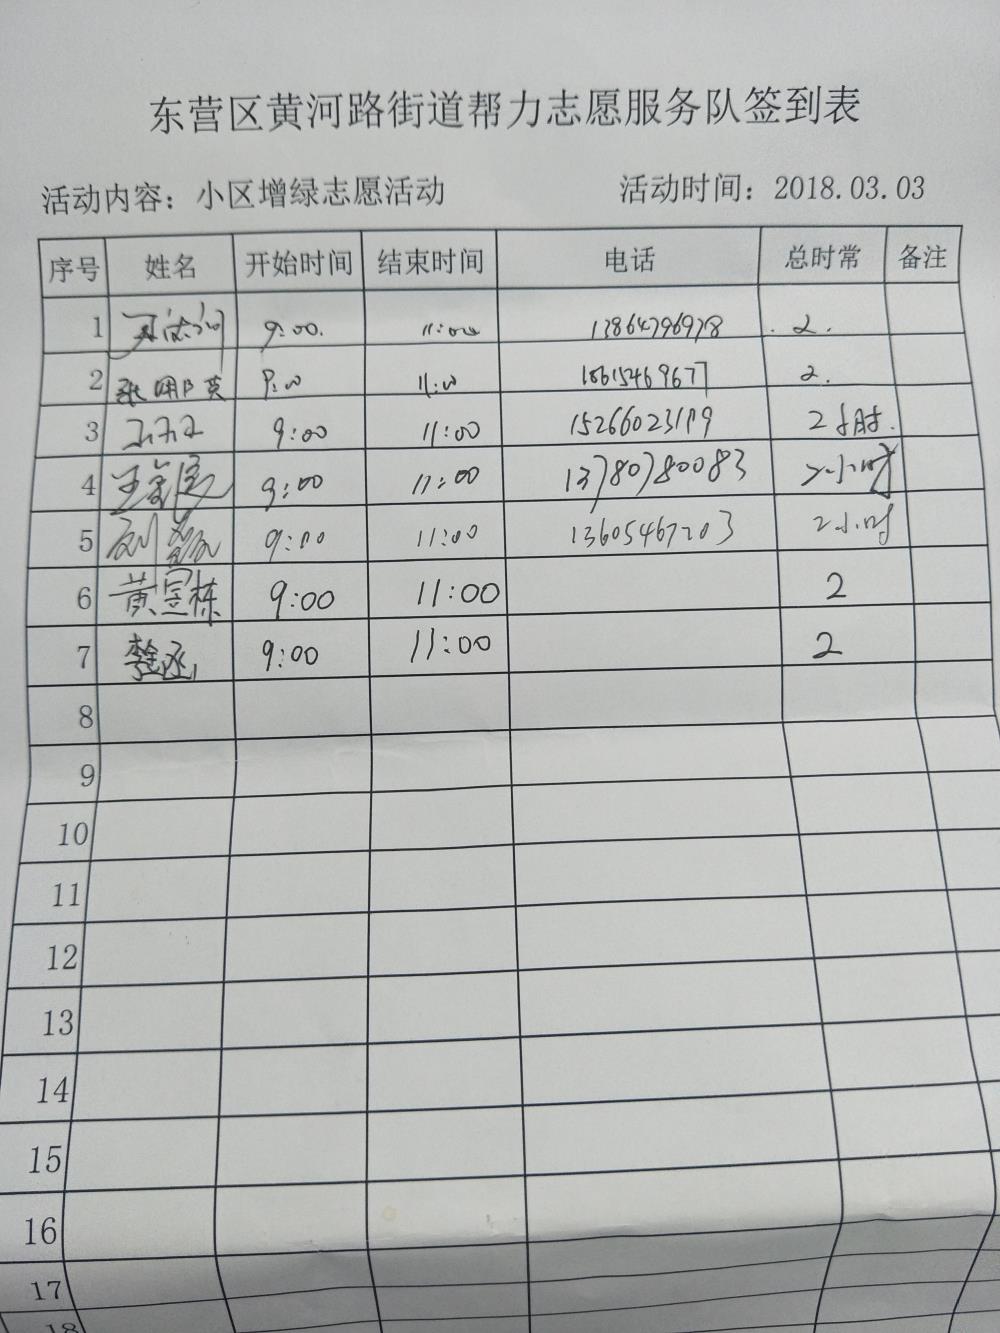 东营区黄河路街道帮力志愿服务队签到表
活动内容：小区增绿志愿活动 活动时间：2018.03.03
序号 姓名 开始时间 结束时间 电话 总时常 备注
1 9:00. 11:00 13864796978 2.
2 9:00 11:00 18615469677 2.
3 9:00 11:00 15266023119 2小时.
4 9:00 11:00 13780780083 2小时
5 刘 9:00 11:00 13605467203 2小时
6 黄昱栋 9:00 11:00 2
7 9:00 11:00 2
8
9
10
11
12
13
14
15
16
17
18